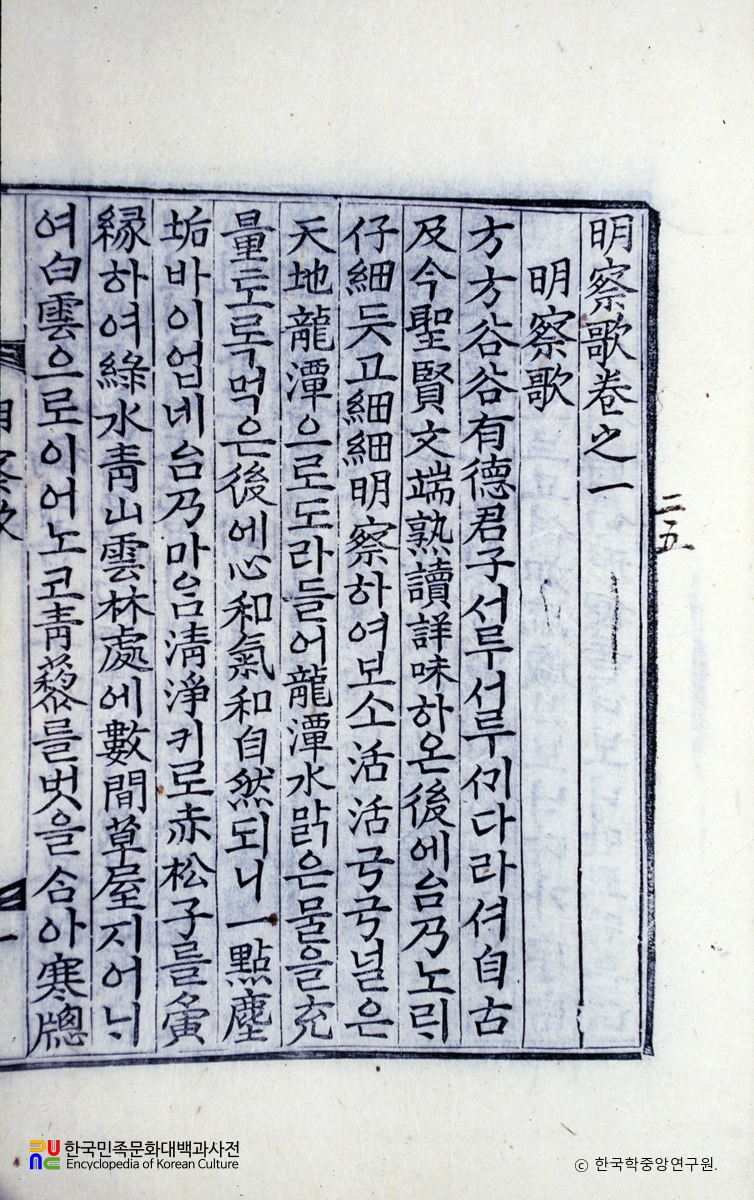 明察歌卷之一
明察歌
方方谷谷有德君子서루서루 다라셔自古
及今聖賢文端熟讀詳味하온後에台乃노ᄅᆡ
仔細듯고細細明察하여보소活活국국널은
天地龍潭으로도라들어龍潭水맑은물을充
量토록먹은後에心和氣和自然되니一點塵
垢바이업네台乃마음淸淨키로赤松子를夤
緣하여綠水靑山雲林處에數間草屋지어ᄂᆡ
여白雲으로이어노코靑藜를벗을삼아寒牕
明察歌
一
二五
한국민족문화대백과사전
Encyclopedia of Korean Culture
ⓒ 한국학중앙연구원.